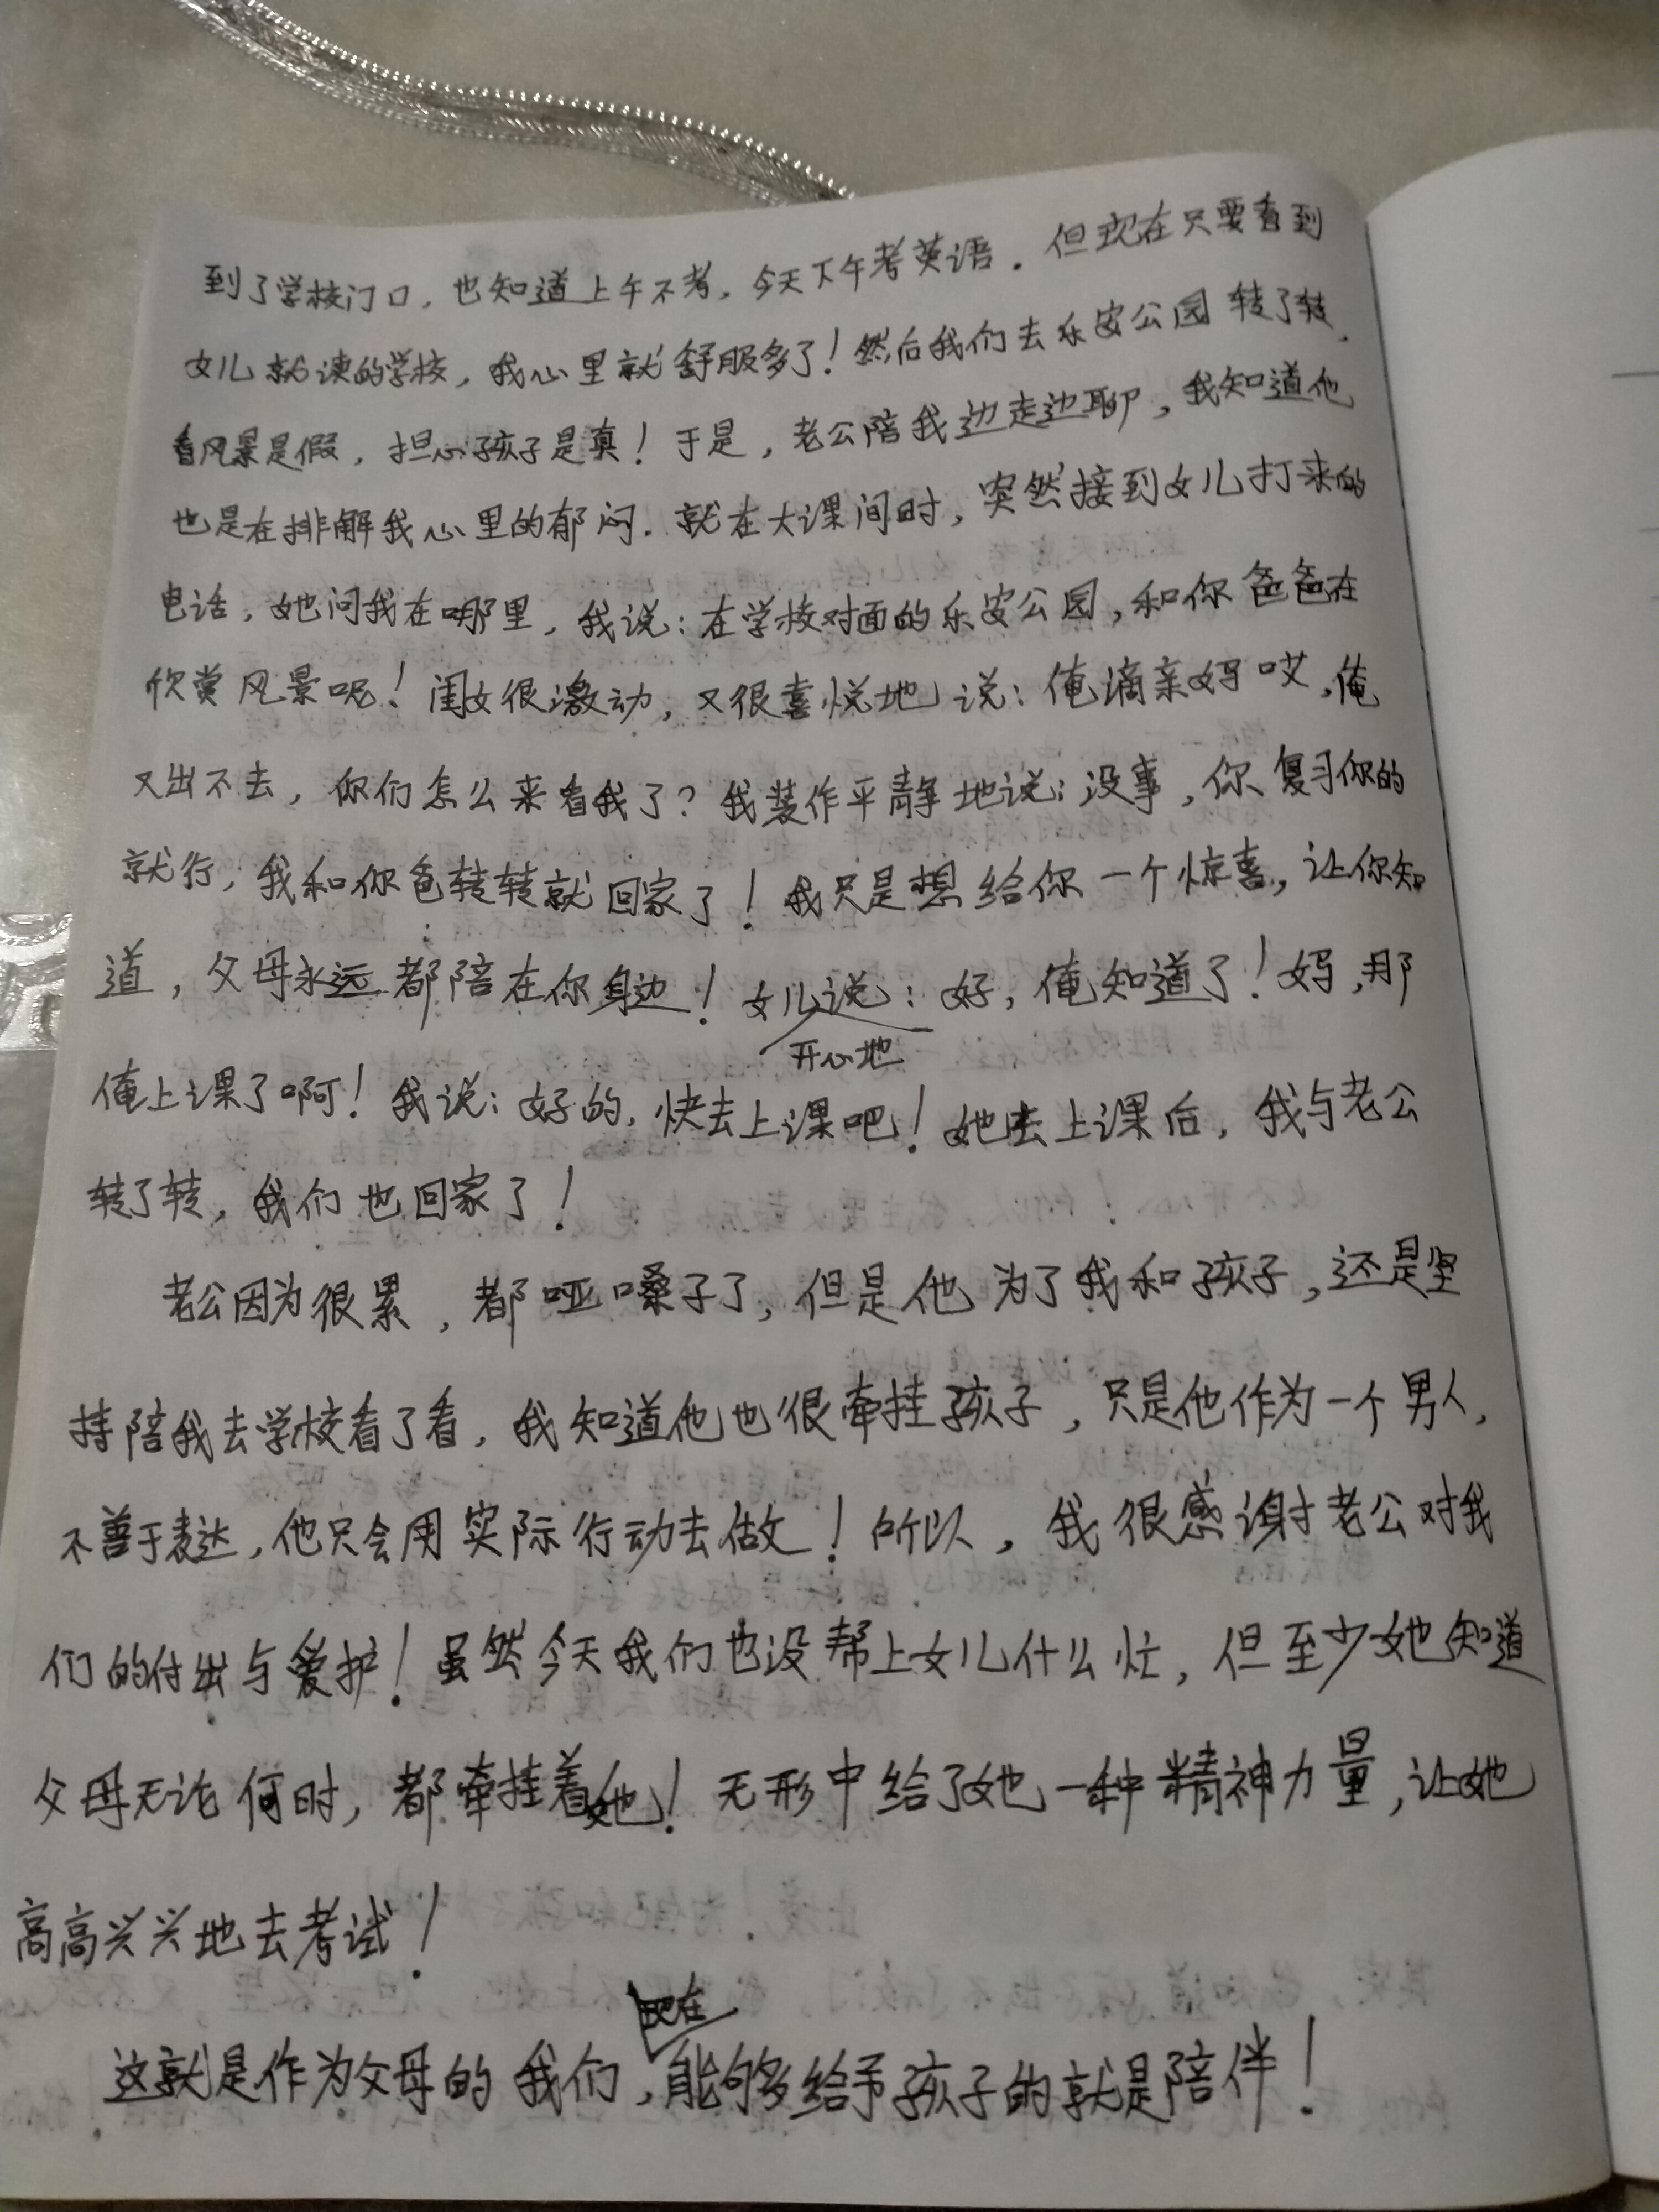 到了学校门口，也知道上午不考，今天下午考英语．但现在只要看到
女儿就读的学校，我心里就舒服多了！然后我们去乐安公园转了转，
看风景是假，担心孩子是真！于是，老公陪我边走边聊，我知道他
也是在排解我心里的郁闷．就在大课间时，突然接到女儿打来的
电话，她问我在哪里，我说：在学校对面的乐安公园，和你爸爸在
欣赏风景呢！闺女很激动，又很喜悦地说：俺滴亲妈哎，俺
又出不去，你们怎么来看我了？我装作平静地说：没事，你复习你的
就行，我和你爸转转就回家了！我只是想给你一个惊喜，让你知
道，父母永远都陪在你身边！女儿说：好，俺知道了！妈，那
开心地
俺上课了啊！我说：好的，快去上课吧！她去上课后，我与老公
转了转，我们也回家了！
老公因为很累，都哑嗓子了，但是他为了我和孩子，还是坚
持陪我去学校看了看，我知道他也很牵挂孩子，只是他作为一个男人，
不善于表达，他只会用实际行动去做！所以，我很感谢老公对我
们的付出与爱护！虽然今天我们也没帮上女儿什么忙，但至少她知道
父母无论何时，都牵挂着她！无形中给了她一种精神力量，让她
高高兴兴地去考试！
现在
这就是作为父母的我们，能够给予孩子的就是陪伴！